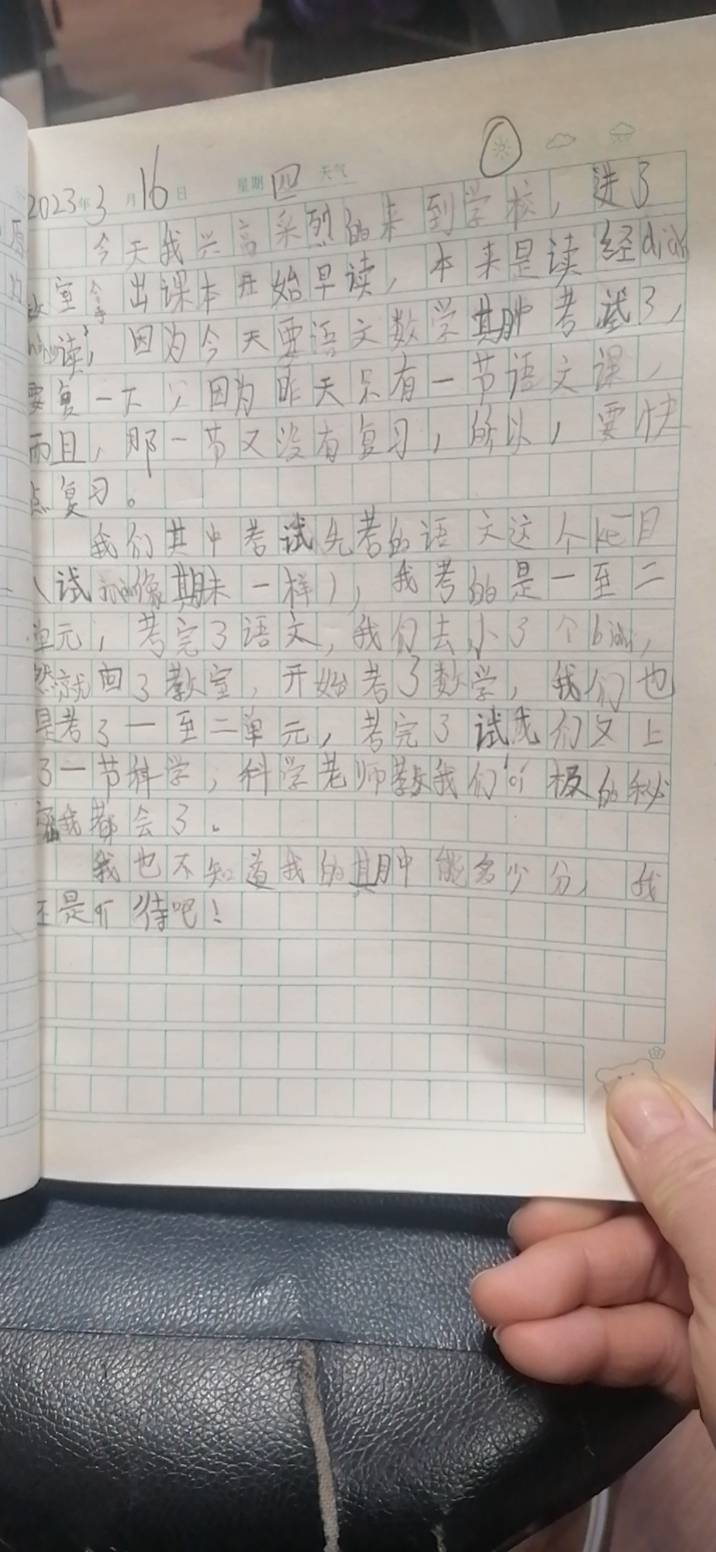 2023年3月16日 星期四 天气
今天我兴高采烈的来到学校，进了
教室拿出课本开始早读，本来是读经diǎn
读，因为今天要语文数学期中考试了，
要复一下，因为昨天只有一节语文课，
而且，那一节又没有复习，所以，要快
点复习。
我们其中考试先考的语文这个kē目
（试 像期末一样），我考的是一至二
单元，考完了语文，我们去小了个biàn，
然就回了教室，开始考了数学，我们也
是考了一至二单元，考完了试我们又上
了一节科学，科学老师教我们 极的秘
密我都会了。
我也不知道我的期中能多少分，我
还是 待吧！